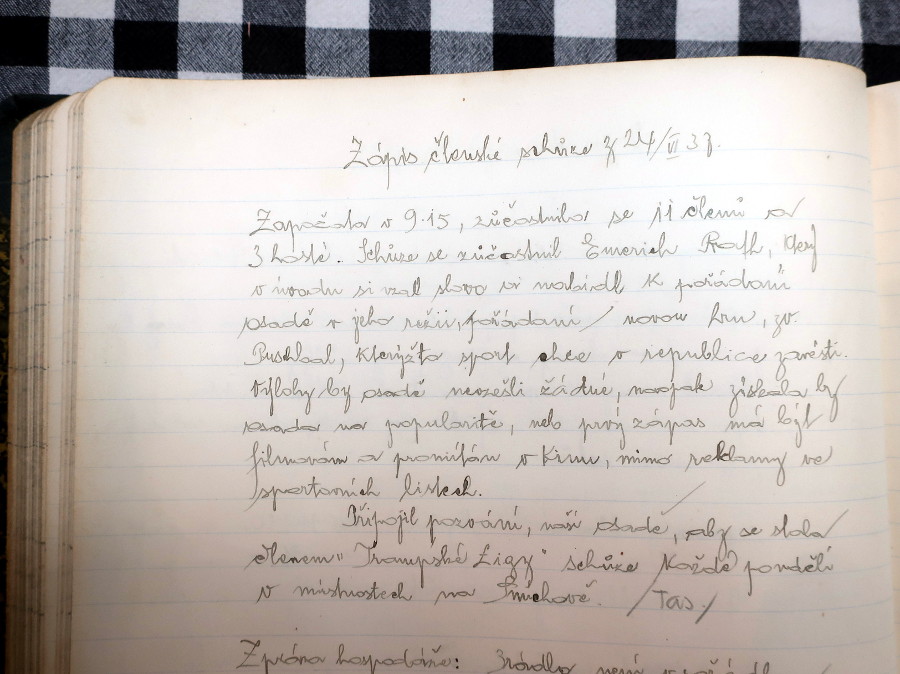 Zápis členské schůze z 24/VI 33.
Započata v 9.15, zúčastnilo se jí členů a
3 hosté. Schůze se zúčastnil Emerich Rath, který
v úvodu si vzal slovo a nabídl k pořádání
osadě v jeho režii, pořádaní / novou hru, zv.
Puschbal, kterýžto sport chce v republice zavésti.
Výlohy by osadě nevzešli žádné, naopak získala by
osada na popularitě, nebo prvý zápas má být
filmován a promítán v Kinu, mimo reklamy ve
sportovních listech.
Připojil pozvání, naší osadě, aby se stala
členem "Trampské Ligy" schůze každé pondělí
v místnostech na Smíchově. /Tas./
Zpráva hospodáře: Zrcadlo není v pořádku